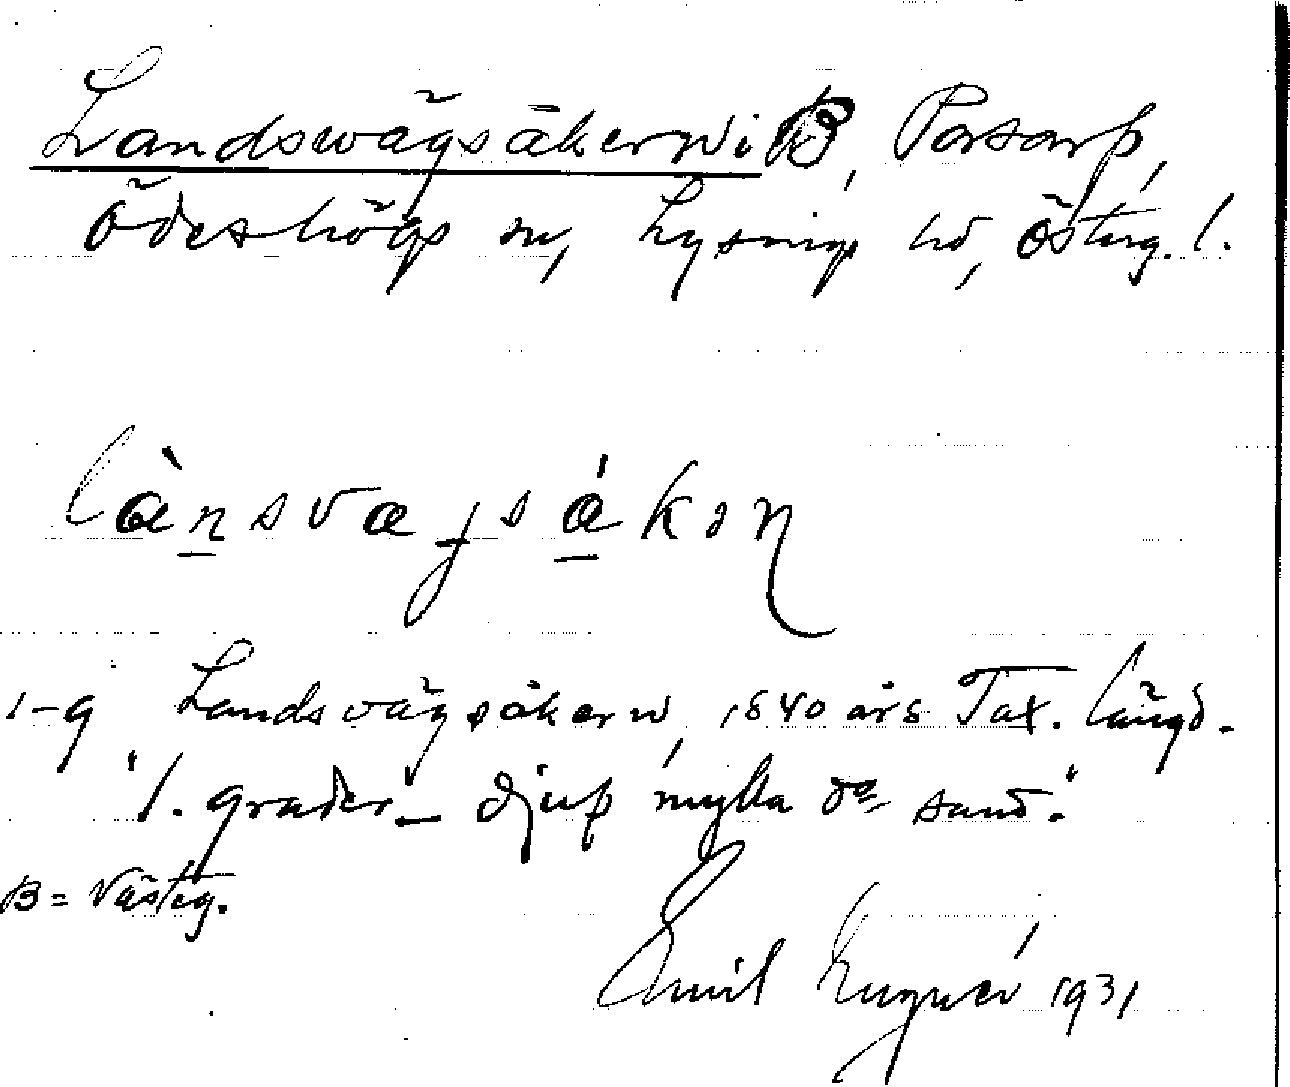 Landsvägsåkern i B, Porsarp,
Ödeshögs sn, Lysings hd, Österg. l.
lànsvaʃsákən
1-9 Landsvägsåkern, 1840 års Tax. längd.
"1. grader - djup mylla oc sand."
B = Västeg.
Emil 1931